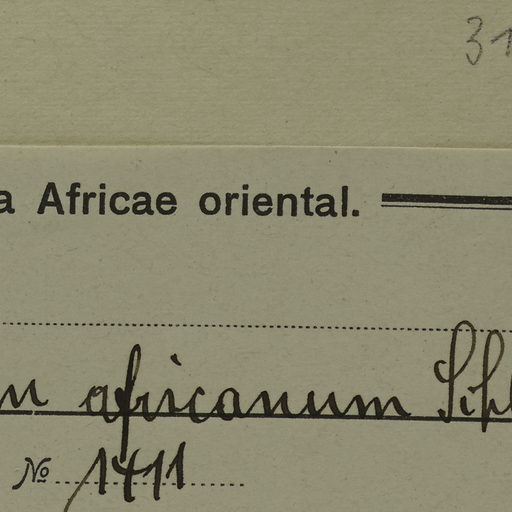 31
a Africae oriental.
n africanum Schl
№ 1411